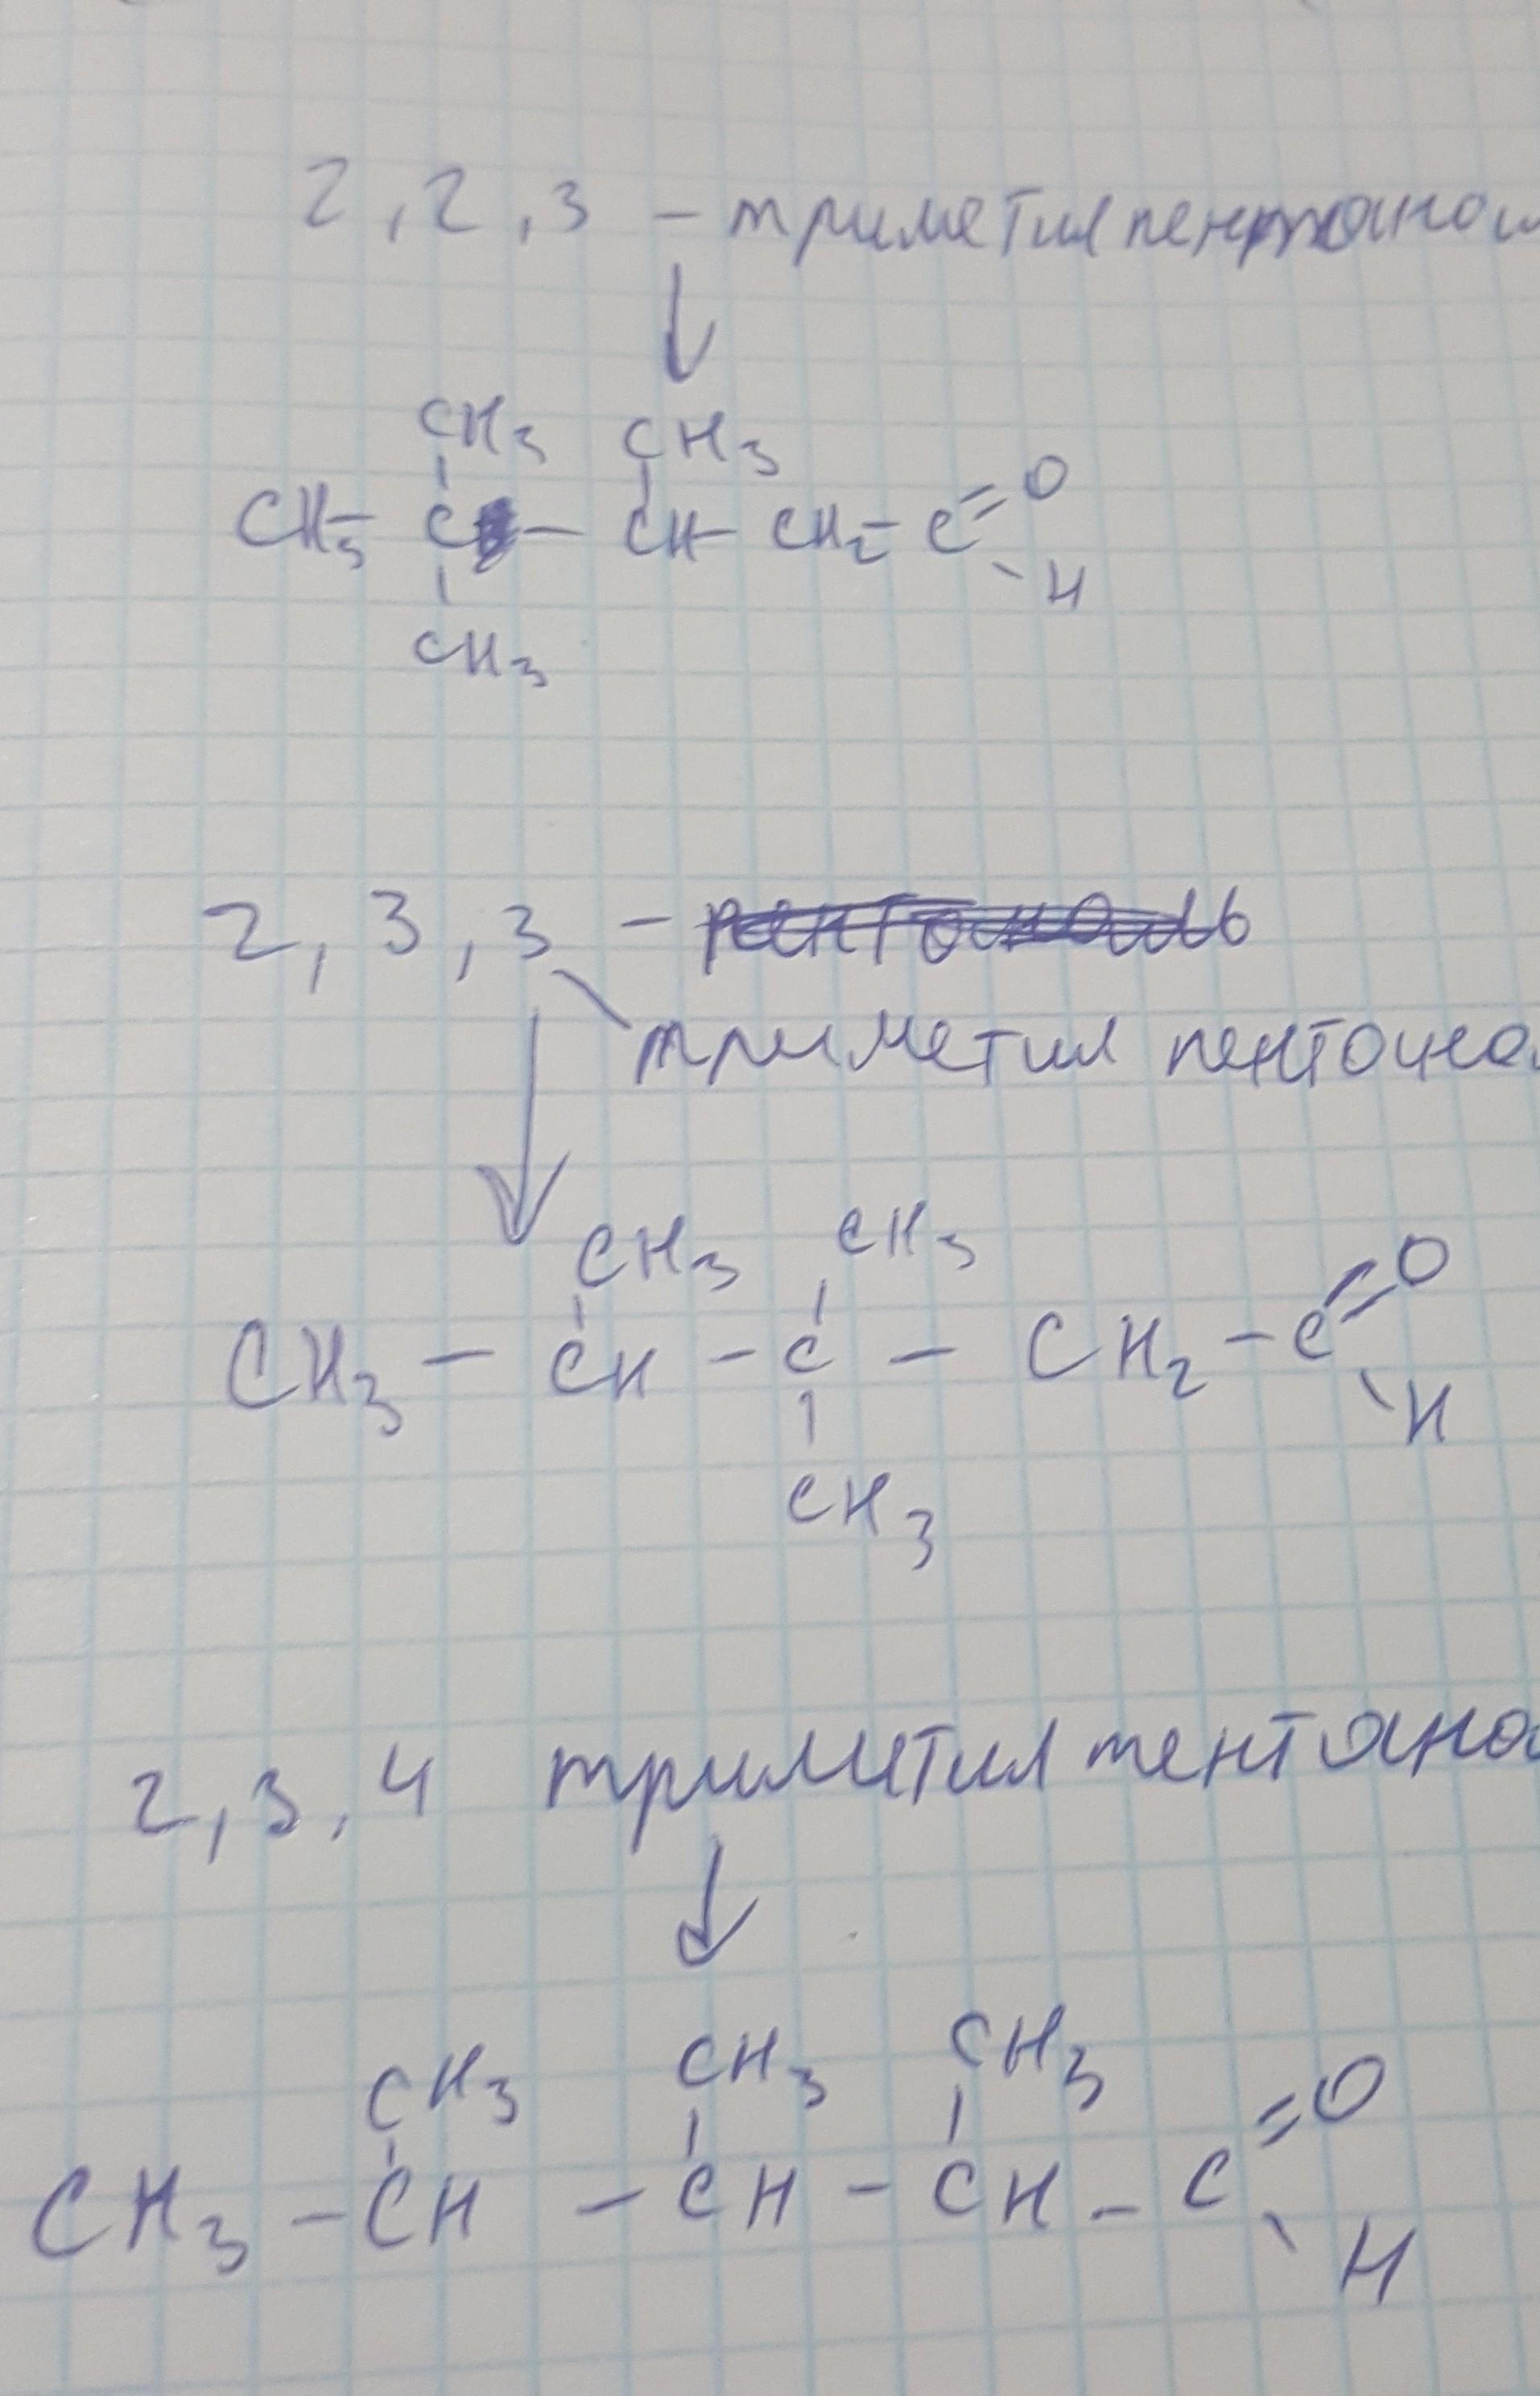 2,2,3 - триметилпентанол
CH3 CH3
CH3- C - CH- CH2- C =O
H
CH3
2,3,3 - пентональ
триметил пентона
CH3 CH3
CH3 - CH - C - CH2 - C =O
H
CH3
2,3,4 триметил пентана
CH3 CH3 CH3
CH3 - CH - CH - CH - C =O
H